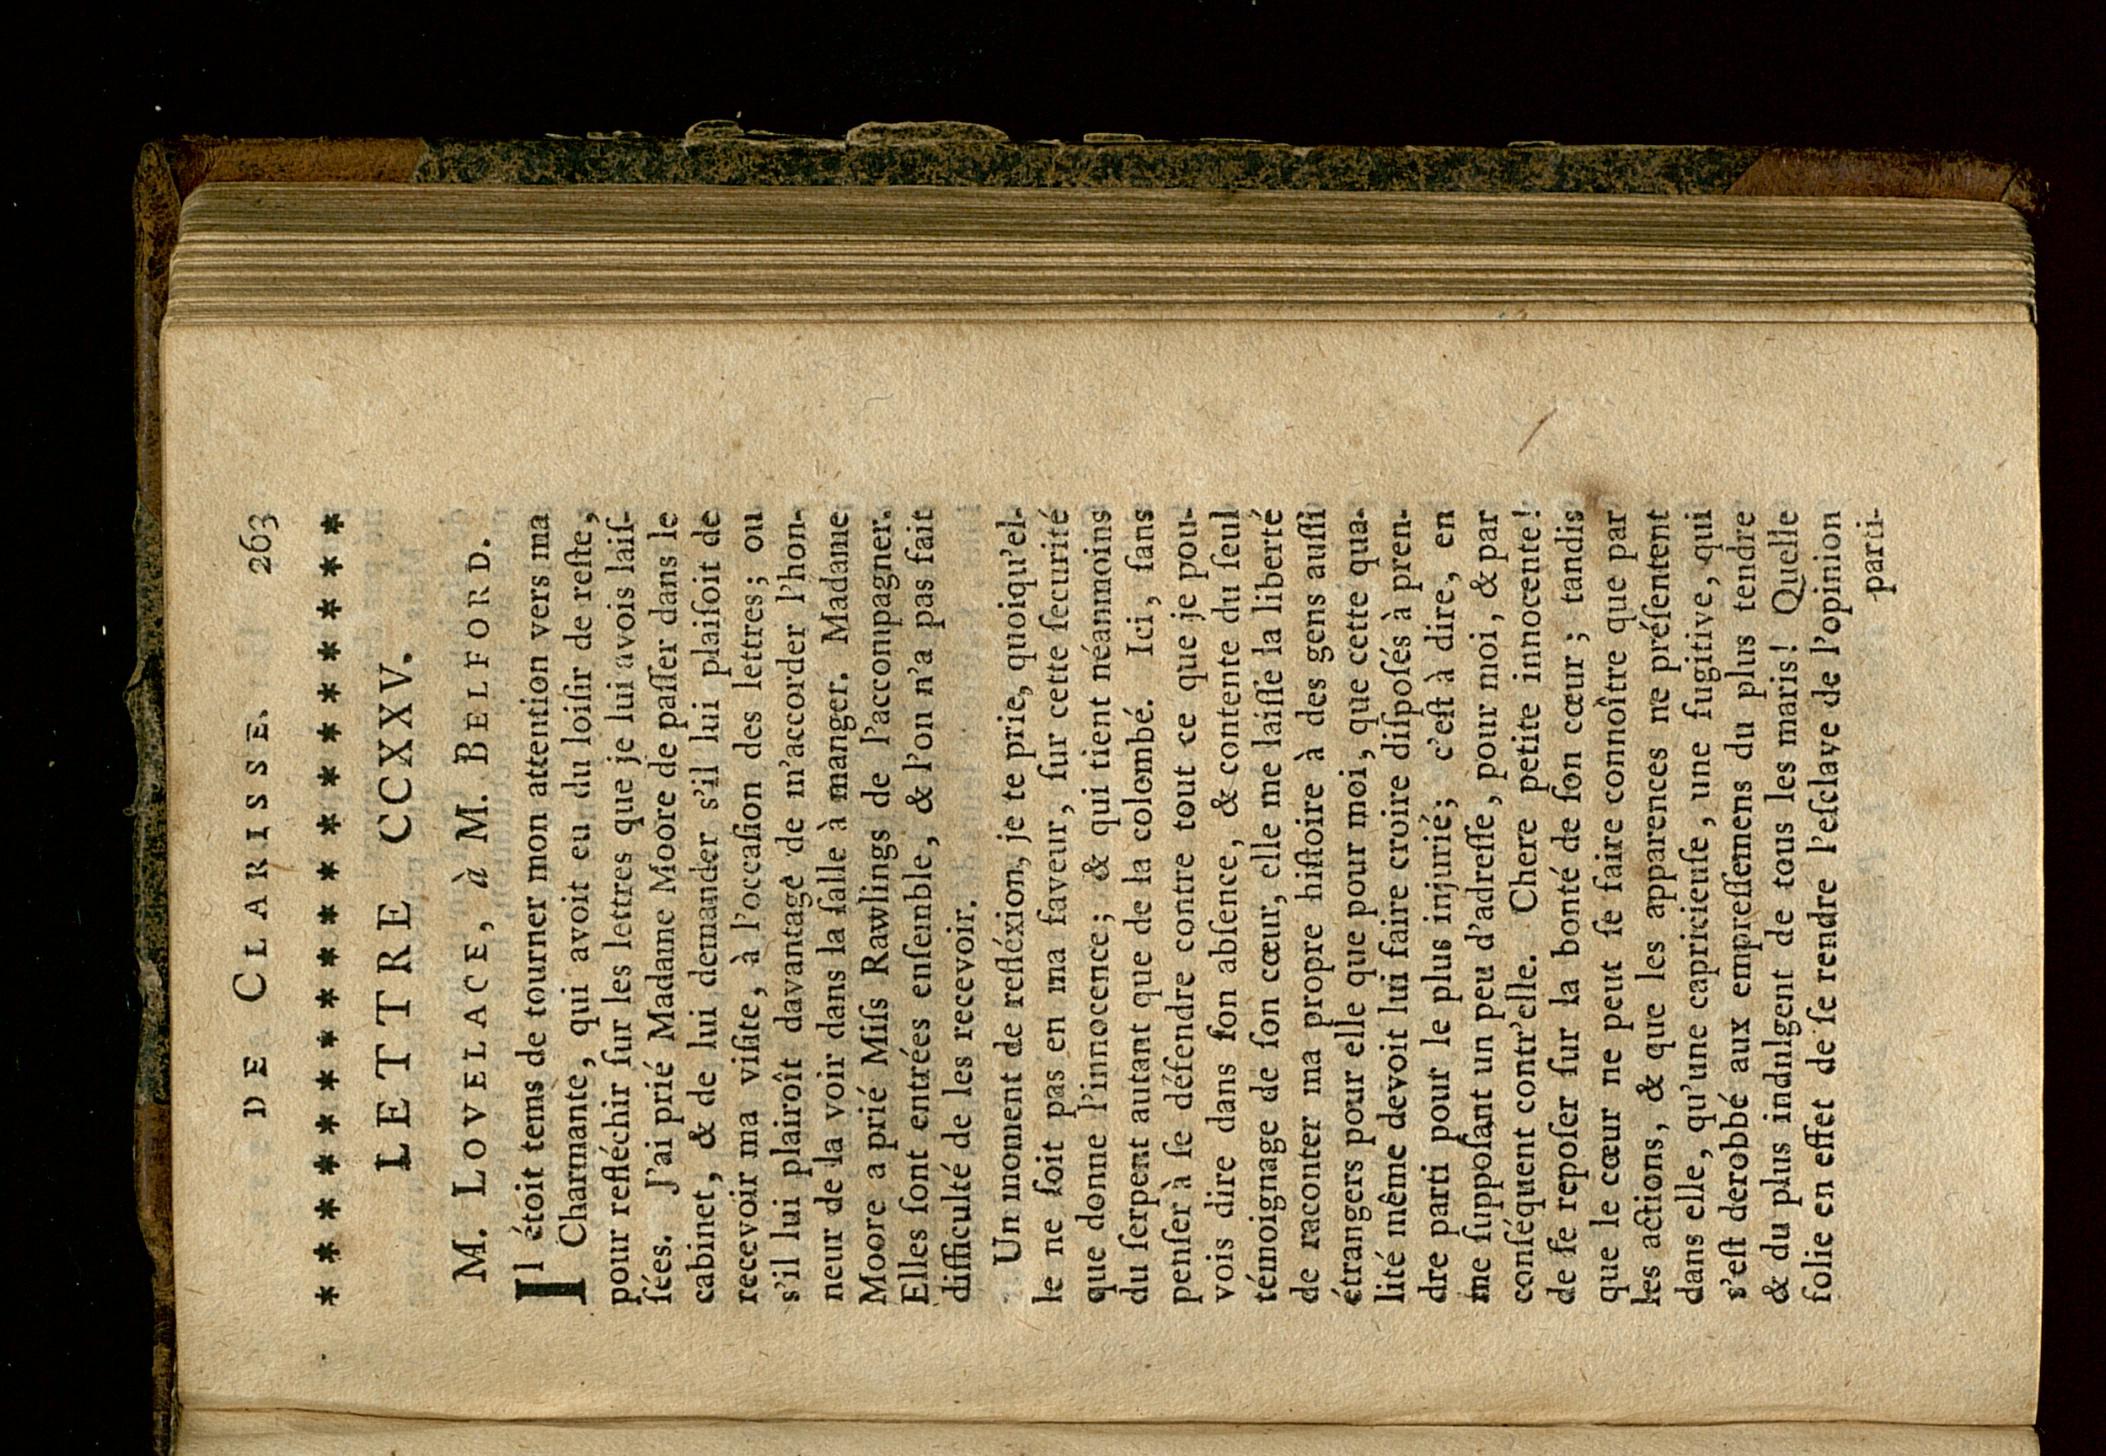 DE CLARISSE. 263
* * * * * * * * * * * * * * * * * * * *
LETTRE CCXXV.
M. LOVELACE, à M. BELFORD.
Il étoit tems de tourner mon attention vers ma
Charmante, qui avoit eu du loiſir de reſte,
pour refléchir ſur les lettres que je lui avois laiſ-
ſées. J'ai prié Madame Moore de paſſer dans le
cabinet, & de lui demander s'il lui plaiſoit de
recevoir ma viſite, à l'occaſion des lettres; ou
s'il lui plairoît davantage de m'accorder l'hon-
neur de la voir dans la ſalle à manger. Madame
Moore a prié Miſs Rawlings de l'accompagner.
Elles ſont entrées enſemble, & l'on n'a pas fait
difficulté de les recevoir.
Un moment de refléxion, je te prie, quoiqu'el-
le ne ſoit pas en ma faveur, ſur cette ſecurité
que donne l'innocence; & qui tient néanmoins
du ſerpent autant que de la colombé. Ici, ſans
penſer à ſe défendre contre tout ce que je pou-
vois dire dans ſon abſence, & contente du ſeul
témoignage de ſon cœur, elle me laiſſe la liberté
de raconter ma propre hiſtoire à des gens auſſi
étrangers pour elle que pour moi, que cette qua-
lité même devoit lui faire croire diſpoſés à pren-
dre parti pour le plus injurié; c'eſt à dire, en
me ſuppoſant un peu d'adreſſe, pour moi, & par
conſéquent contr'elle. Chere petite innocente!
de ſe repoſer ſur la bonté de ſon cœur; tandis
que le cœur ne peut ſe faire connoître que par
les actions, & que les apparences ne préſentent
dans elle, qu'une capricieuſe, une fugitive, qui
s'eſt derobbé aux empreſſemens du plus tendre
& du plus indulgent de tous les maris! Quelle
folie en effet de ſe rendre l'eſclave de l'opinion
parti-